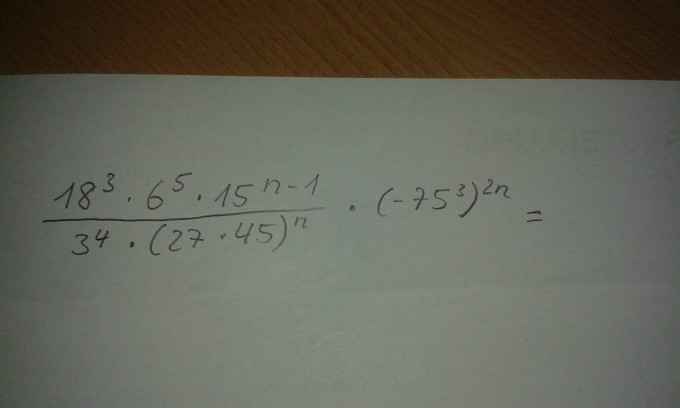 18³ · 6⁵ · 15ⁿ⁻¹
3⁴ · (27 · 45)ⁿ
· (-75³)²ⁿ =